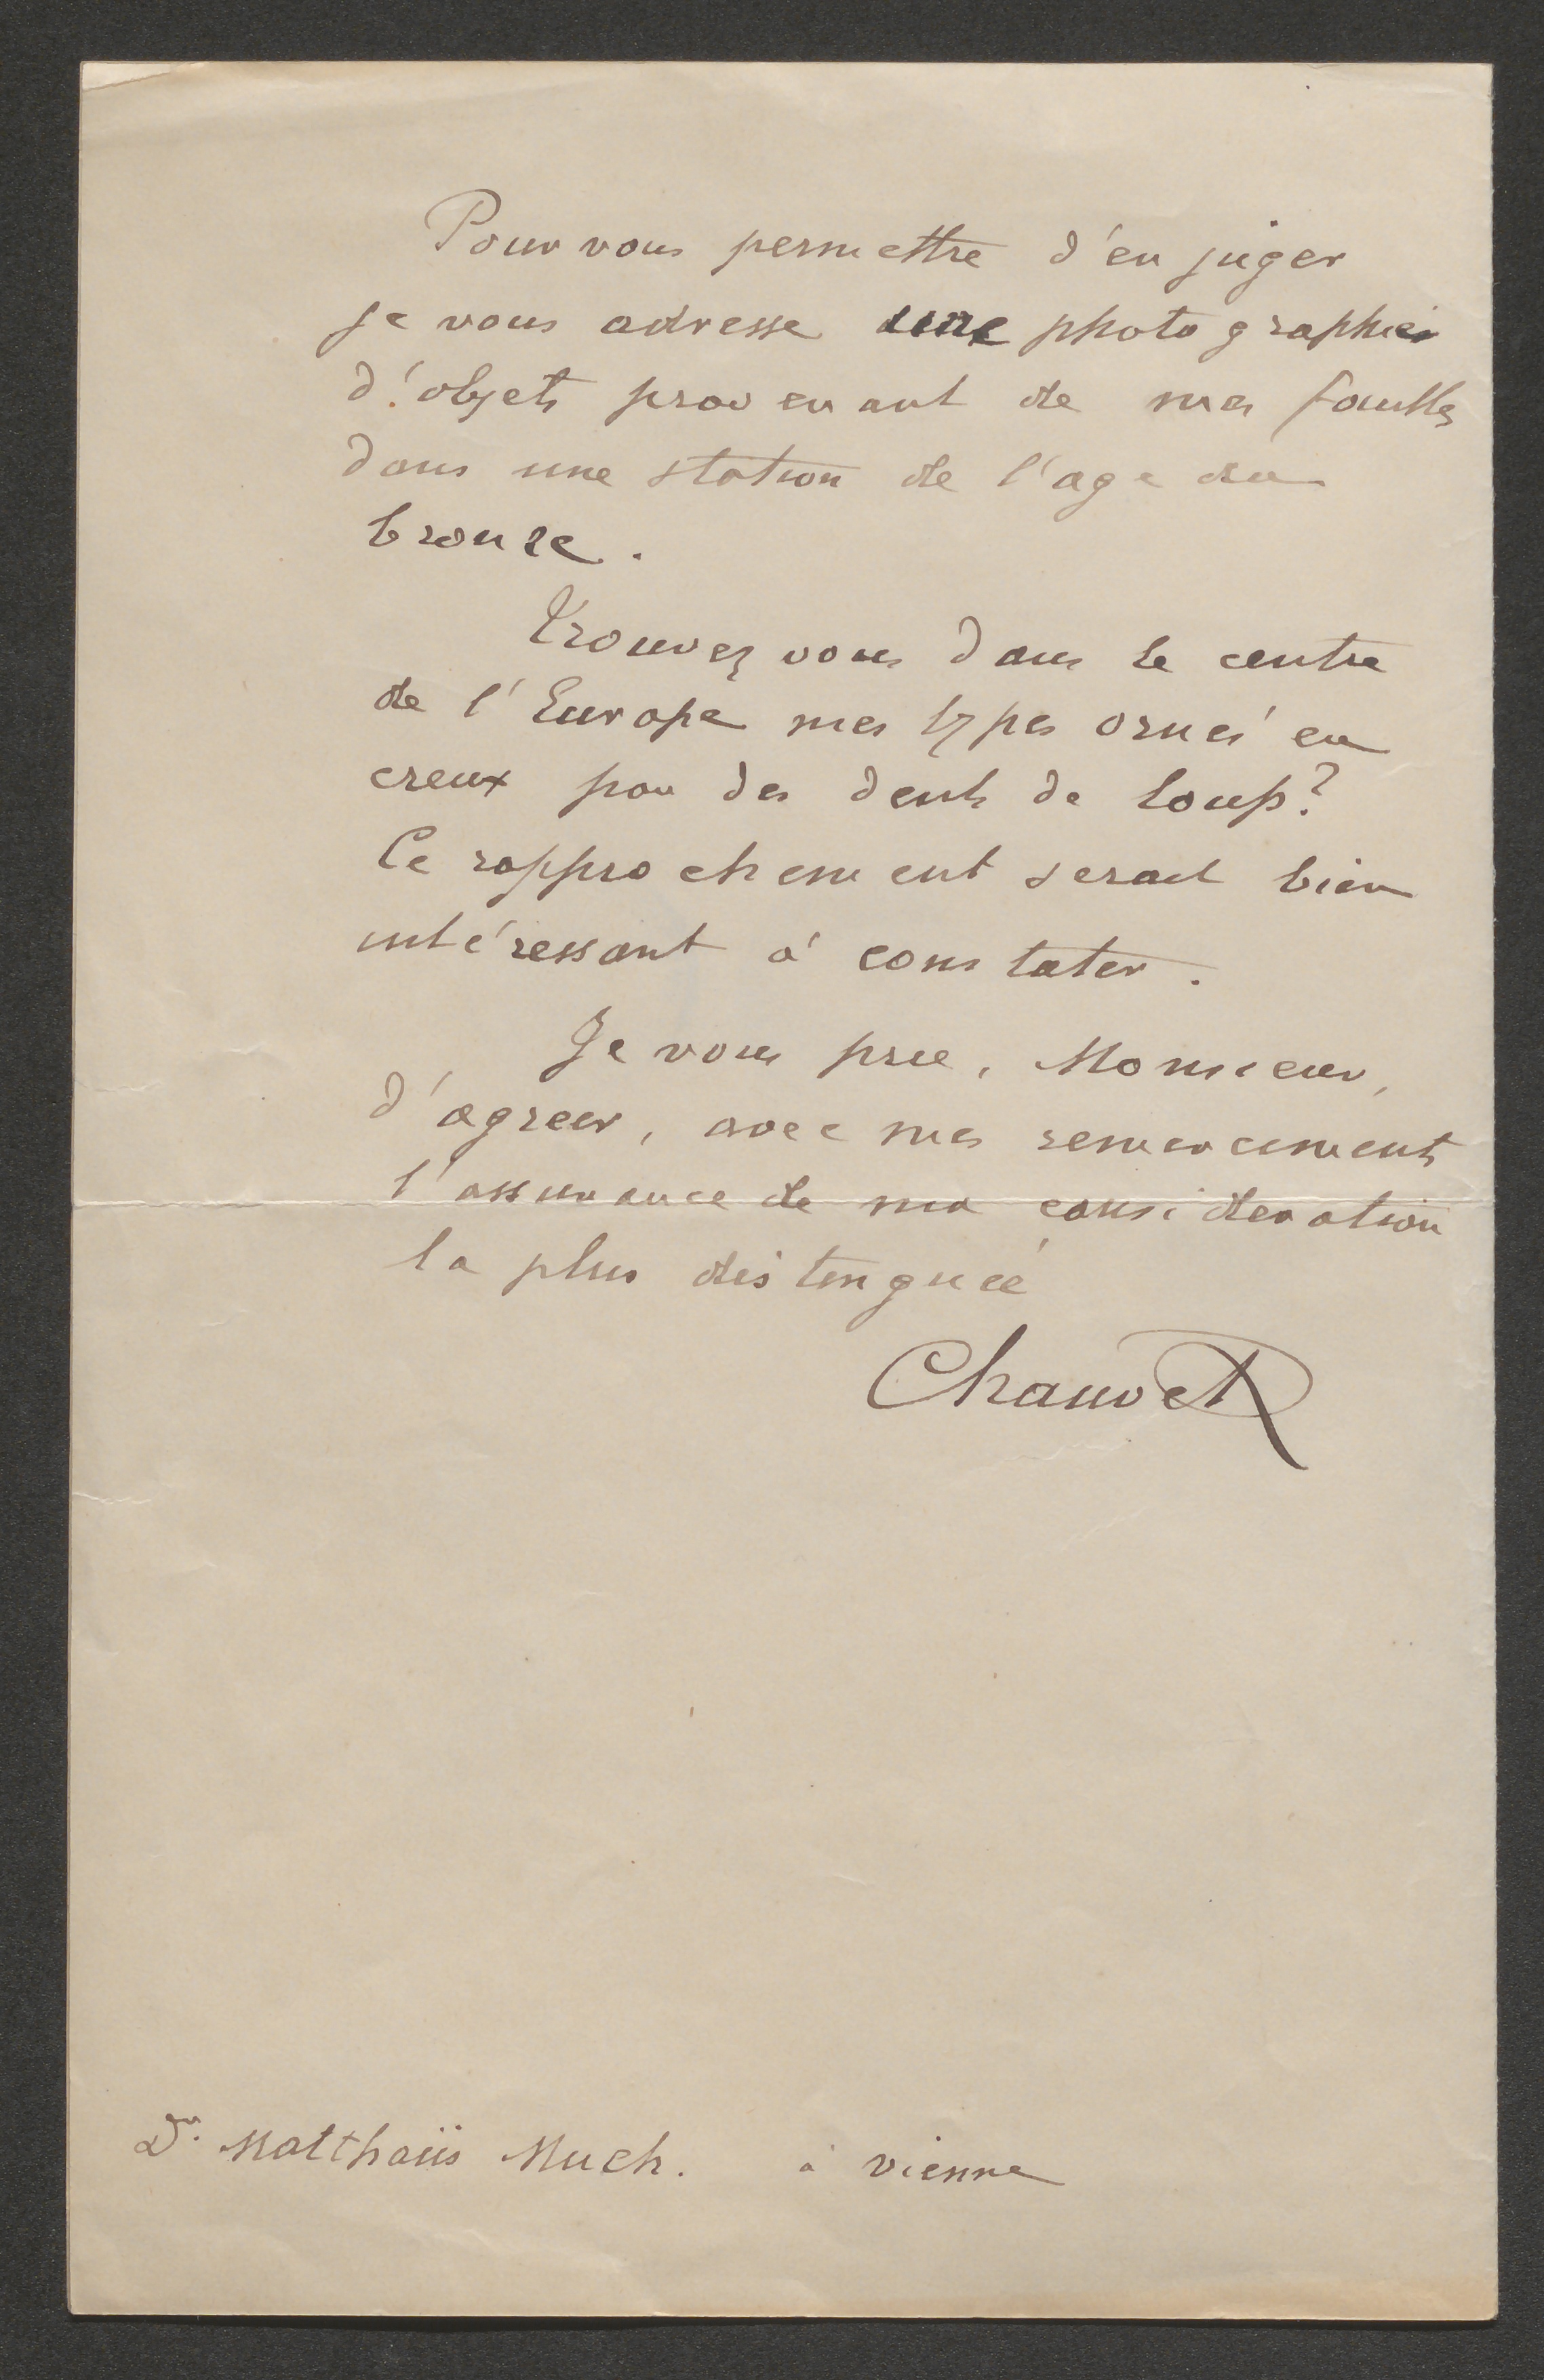 Pour vous permettre d'en juger
je vous adresse une photographie
d'objets provenant de mes fouilles
dans une station de l'age du
bronze.
Trouvez vous dans le centre
de l'Europe mes types ornés en
creux par des dents de loup?
Ce rapprochement serait bien
intéressant à constater.
Je vous prie, Monsieur,
d'agreer, avec mes remerciments
l'assurance de ma consideration
la plus distinguée
Chauvet
Dr. Matthaüs Much. à Vienne